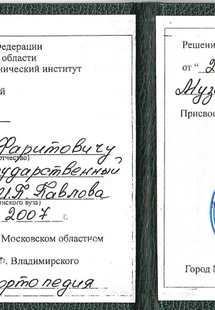 Федерации
области
нический институт
ой
Фаритовичу
отчество)
сударственный
И.П. Павлова
нского вуза)
2007 г.
Московском областном
Ф. Владимирского
ортопедия
Решени
от "2
Муза
Присвое
Город М